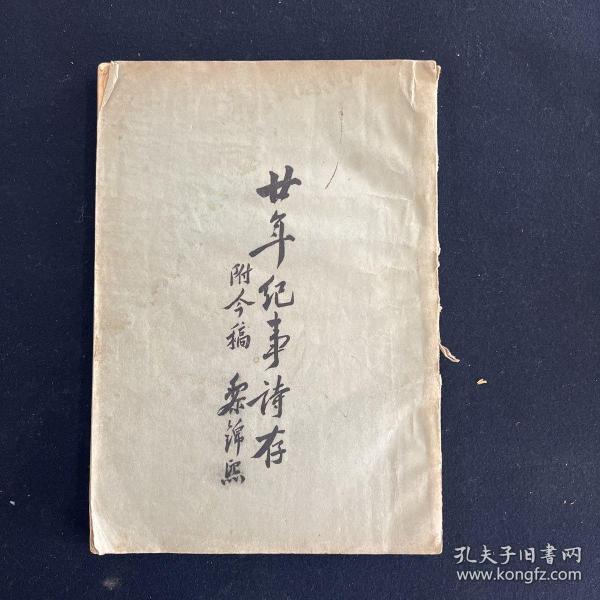 廿年纪事诗存
附今稿
黎锦熙
孔夫子旧书网
www.kongfz.com